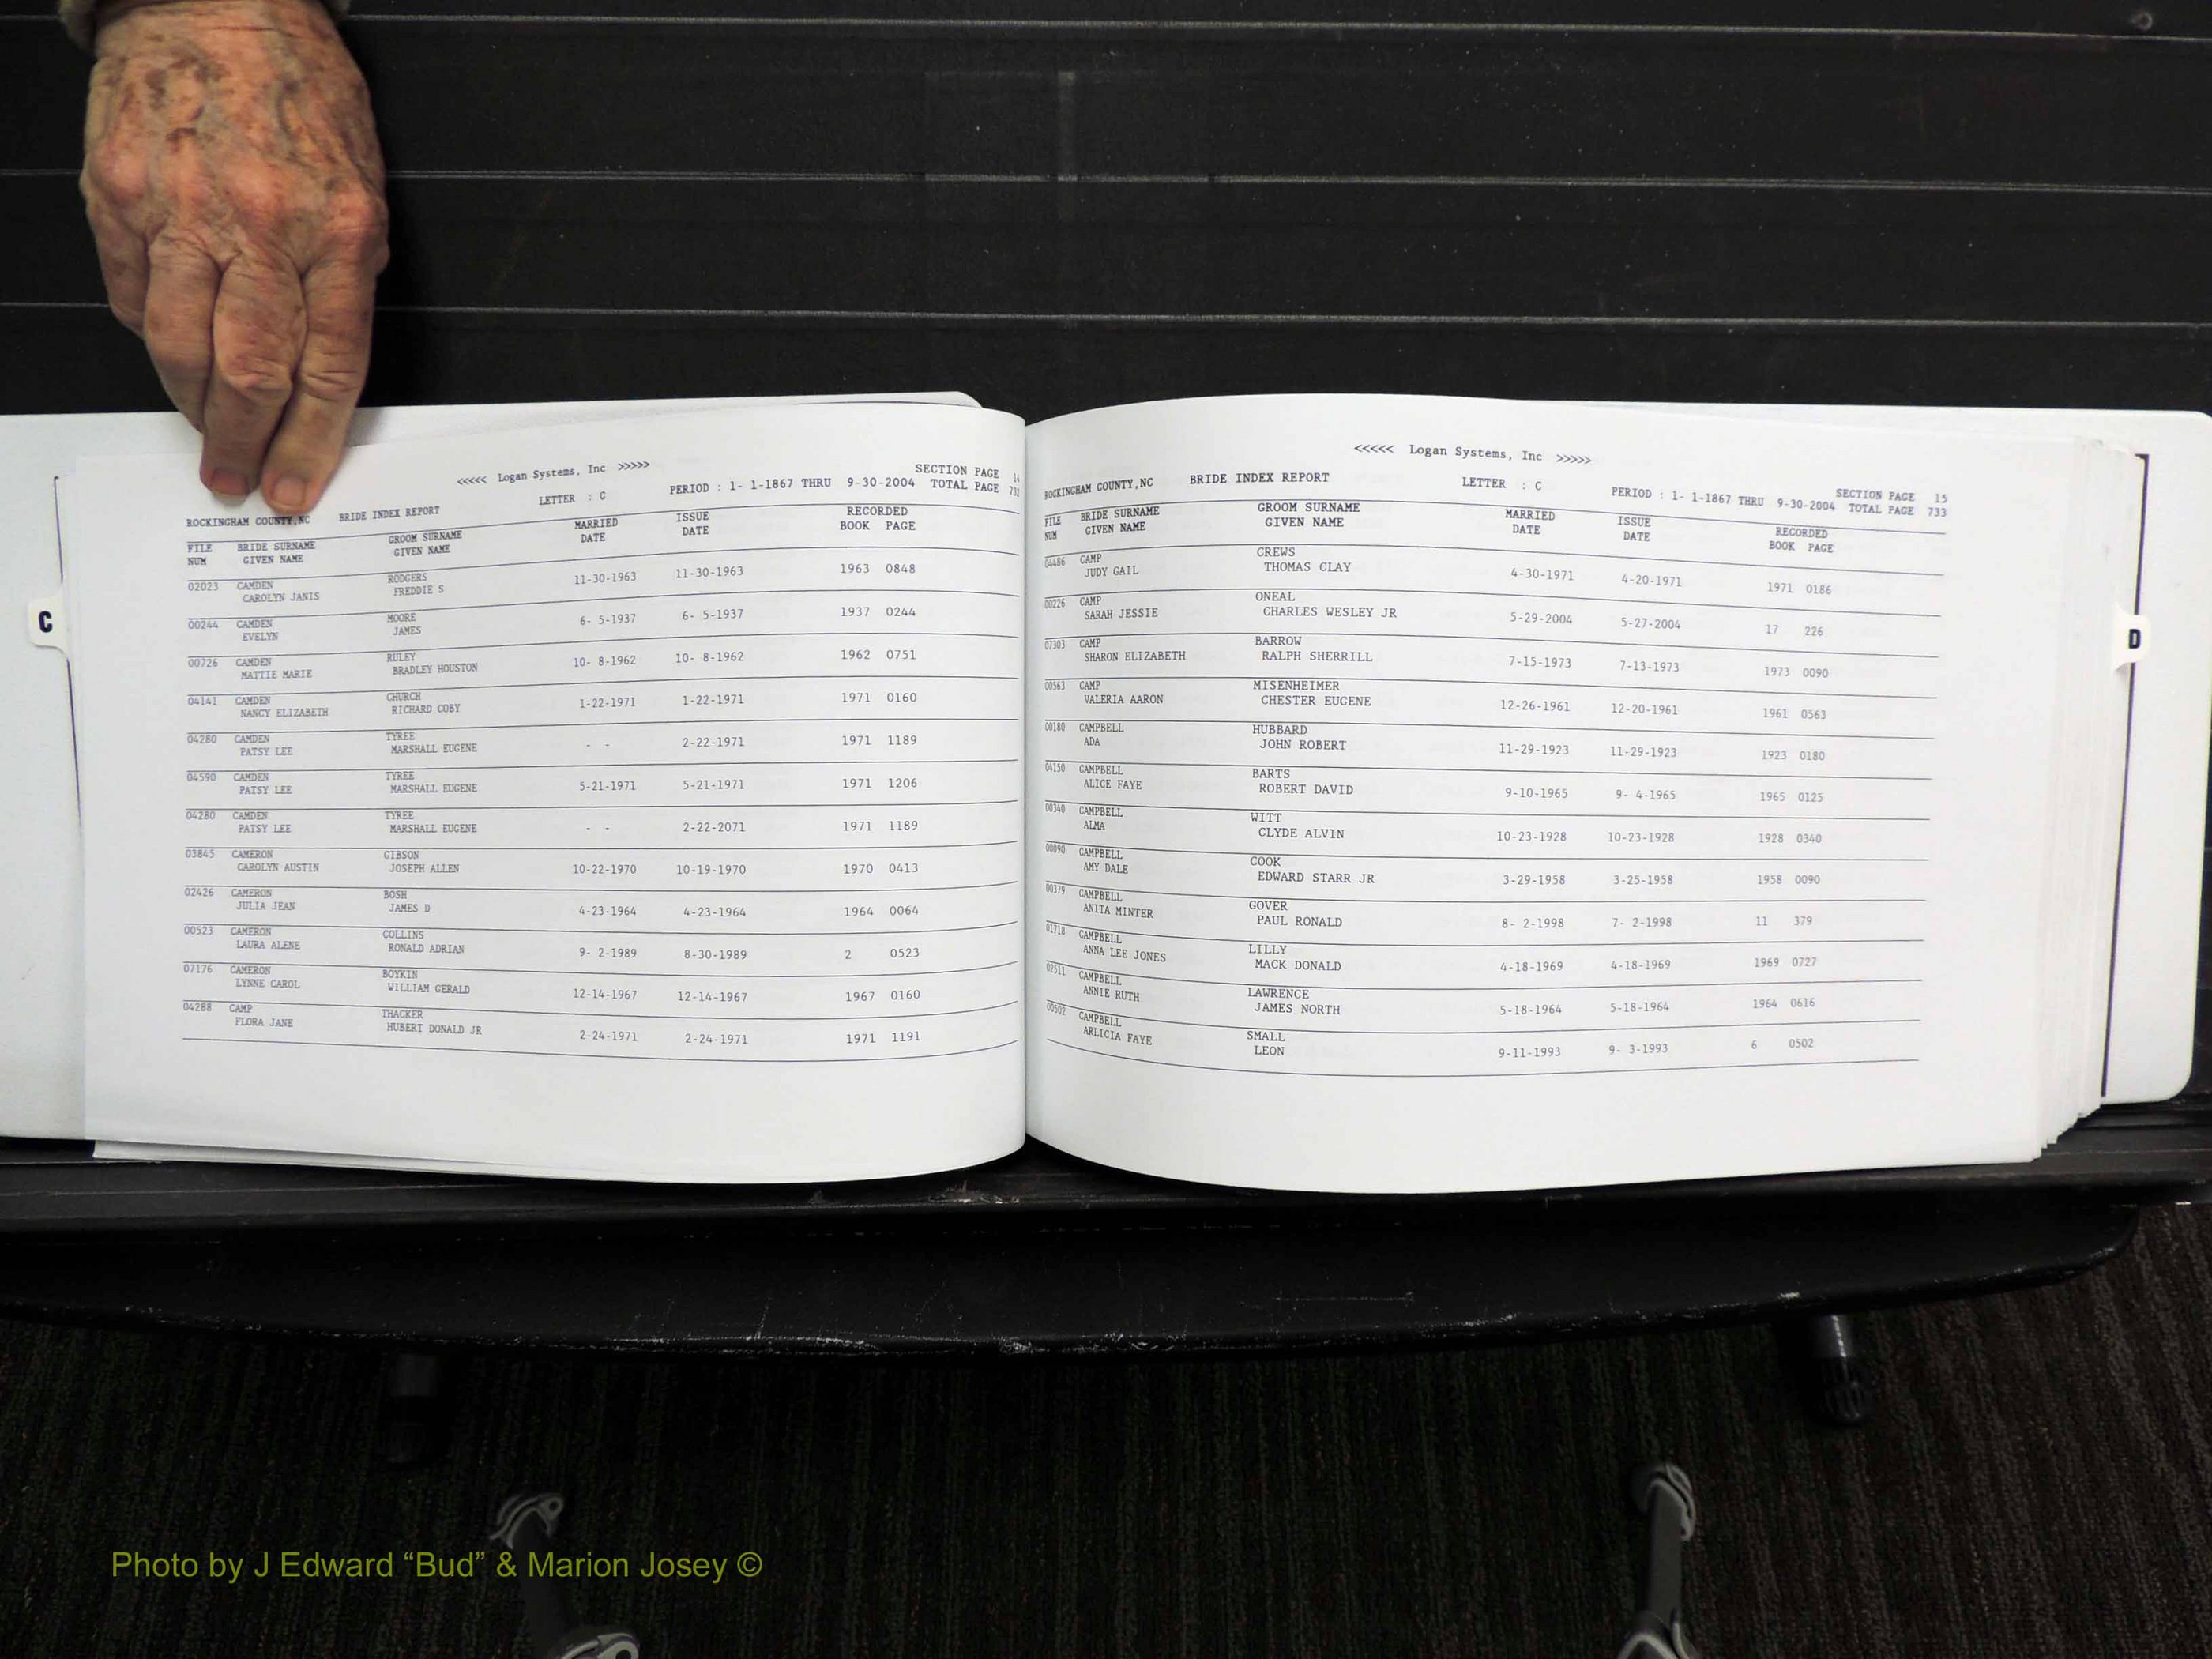 <<<<< Logan Systems, Inc >>>>>
SECTION PAGE 14
ROCKINGHAM COUNTY,NC BRIDE INDEX REPORT LETTER : C PERIOD : 1- 1-1867 THRU 9-30-2004 TOTAL PAGE 732
FILE BRIDE SURNAME GROOM SURNAME MARRIED ISSUE RECORDED
NUM GIVEN NAME GIVEN NAME DATE DATE BOOK PAGE
02023 CAMDEN RODGERS 11-30-1963 11-30-1963 1963 0848
CAROLYN JANIS FREDDIE S
00244 CAMDEN MOORE 6- 5-1937 6- 5-1937 1937 0244
EVELYN JAMES
00726 CAMDEN RULEY 10- 8-1962 10- 8-1962 1962 0751
MATTIE MARIE BRADLEY HOUSTON
04141 CAMDEN CHURCH 1-22-1971 1-22-1971 1971 0160
NANCY ELIZABETH RICHARD COBY
04280 CAMDEN TYREE - - 2-22-1971 1971 1189
PATSY LEE MARSHALL EUGENE
04590 CAMDEN TYREE 5-21-1971 5-21-1971 1971 1206
PATSY LEE MARSHALL EUGENE
04280 CAMDEN TYREE - - 2-22-2071 1971 1189
PATSY LEE MARSHALL EUGENE
03845 CAMERON GIBSON 10-22-1970 10-19-1970 1970 0413
CAROLYN AUSTIN JOSEPH ALLEN
02426 CAMERON BOSH 4-23-1964 4-23-1964 1964 0064
JULIA JEAN JAMES D
00523 CAMERON COLLINS 9- 2-1989 8-30-1989 2 0523
LAURA ALENE RONALD ADRIAN
07176 CAMERON BOYKIN 12-14-1967 12-14-1967 1967 0160
LYNNE CAROL WILLIAM GERALD
04288 CAMP THACKER 2-24-1971 2-24-1971 1971 1191
FLORA JANE HUBERT DONALD JR
C
<<<<< Logan Systems, Inc >>>>>
SECTION PAGE 15
ROCKINGHAM COUNTY,NC BRIDE INDEX REPORT LETTER : C PERIOD : 1- 1-1867 THRU 9-30-2004 TOTAL PAGE 733
FILE BRIDE SURNAME GROOM SURNAME MARRIED ISSUE RECORDED
NUM GIVEN NAME GIVEN NAME DATE DATE BOOK PAGE
04486 CAMP CREWS 4-30-1971 4-20-1971 1971 0186
JUDY GAIL THOMAS CLAY
00226 CAMP ONEAL 5-29-2004 5-27-2004 17 226
SARAH JESSIE CHARLES WESLEY JR
07303 CAMP BARROW 7-15-1973 7-13-1973 1973 0090
SHARON ELIZABETH RALPH SHERRILL
00563 CAMP MISENHEIMER 12-26-1961 12-20-1961 1961 0563
VALERIA AARON CHESTER EUGENE
00180 CAMPBELL HUBBARD 11-29-1923 11-29-1923 1923 0180
ADA JOHN ROBERT
04150 CAMPBELL BARTS 9-10-1965 9- 4-1965 1965 0125
ALICE FAYE ROBERT DAVID
00340 CAMPBELL WITT 10-23-1928 10-23-1928 1928 0340
ALMA CLYDE ALVIN
00090 CAMPBELL COOK 3-29-1958 3-25-1958 1958 0090
AMY DALE EDWARD STARR JR
00379 CAMPBELL GOVER 8- 2-1998 7- 2-1998 11 379
ANITA MINTER PAUL RONALD
01718 CAMPBELL LILLY 4-18-1969 4-18-1969 1969 0727
ANNA LEE JONES MACK DONALD
02511 CAMPBELL LAWRENCE 5-18-1964 5-18-1964 1964 0616
ANNIE RUTH JAMES NORTH
00502 CAMPBELL SMALL 9-11-1993 9- 3-1993 6 0502
ARLICIA FAYE LEON
D
Photo by J Edward “Bud” & Marion Josey ©